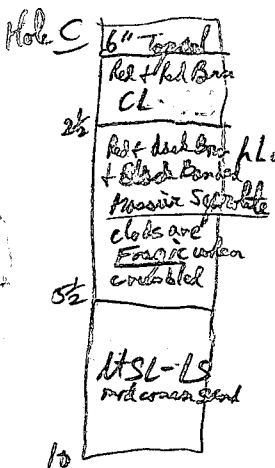 Hole C
6" Topsoil
Red + Red Brn
CL
2½
Red + dark Brn
+ Black Banded
Massive Saprolite
clods are
when
crumbled
5½
LtSL-LS
med coarse sand
10